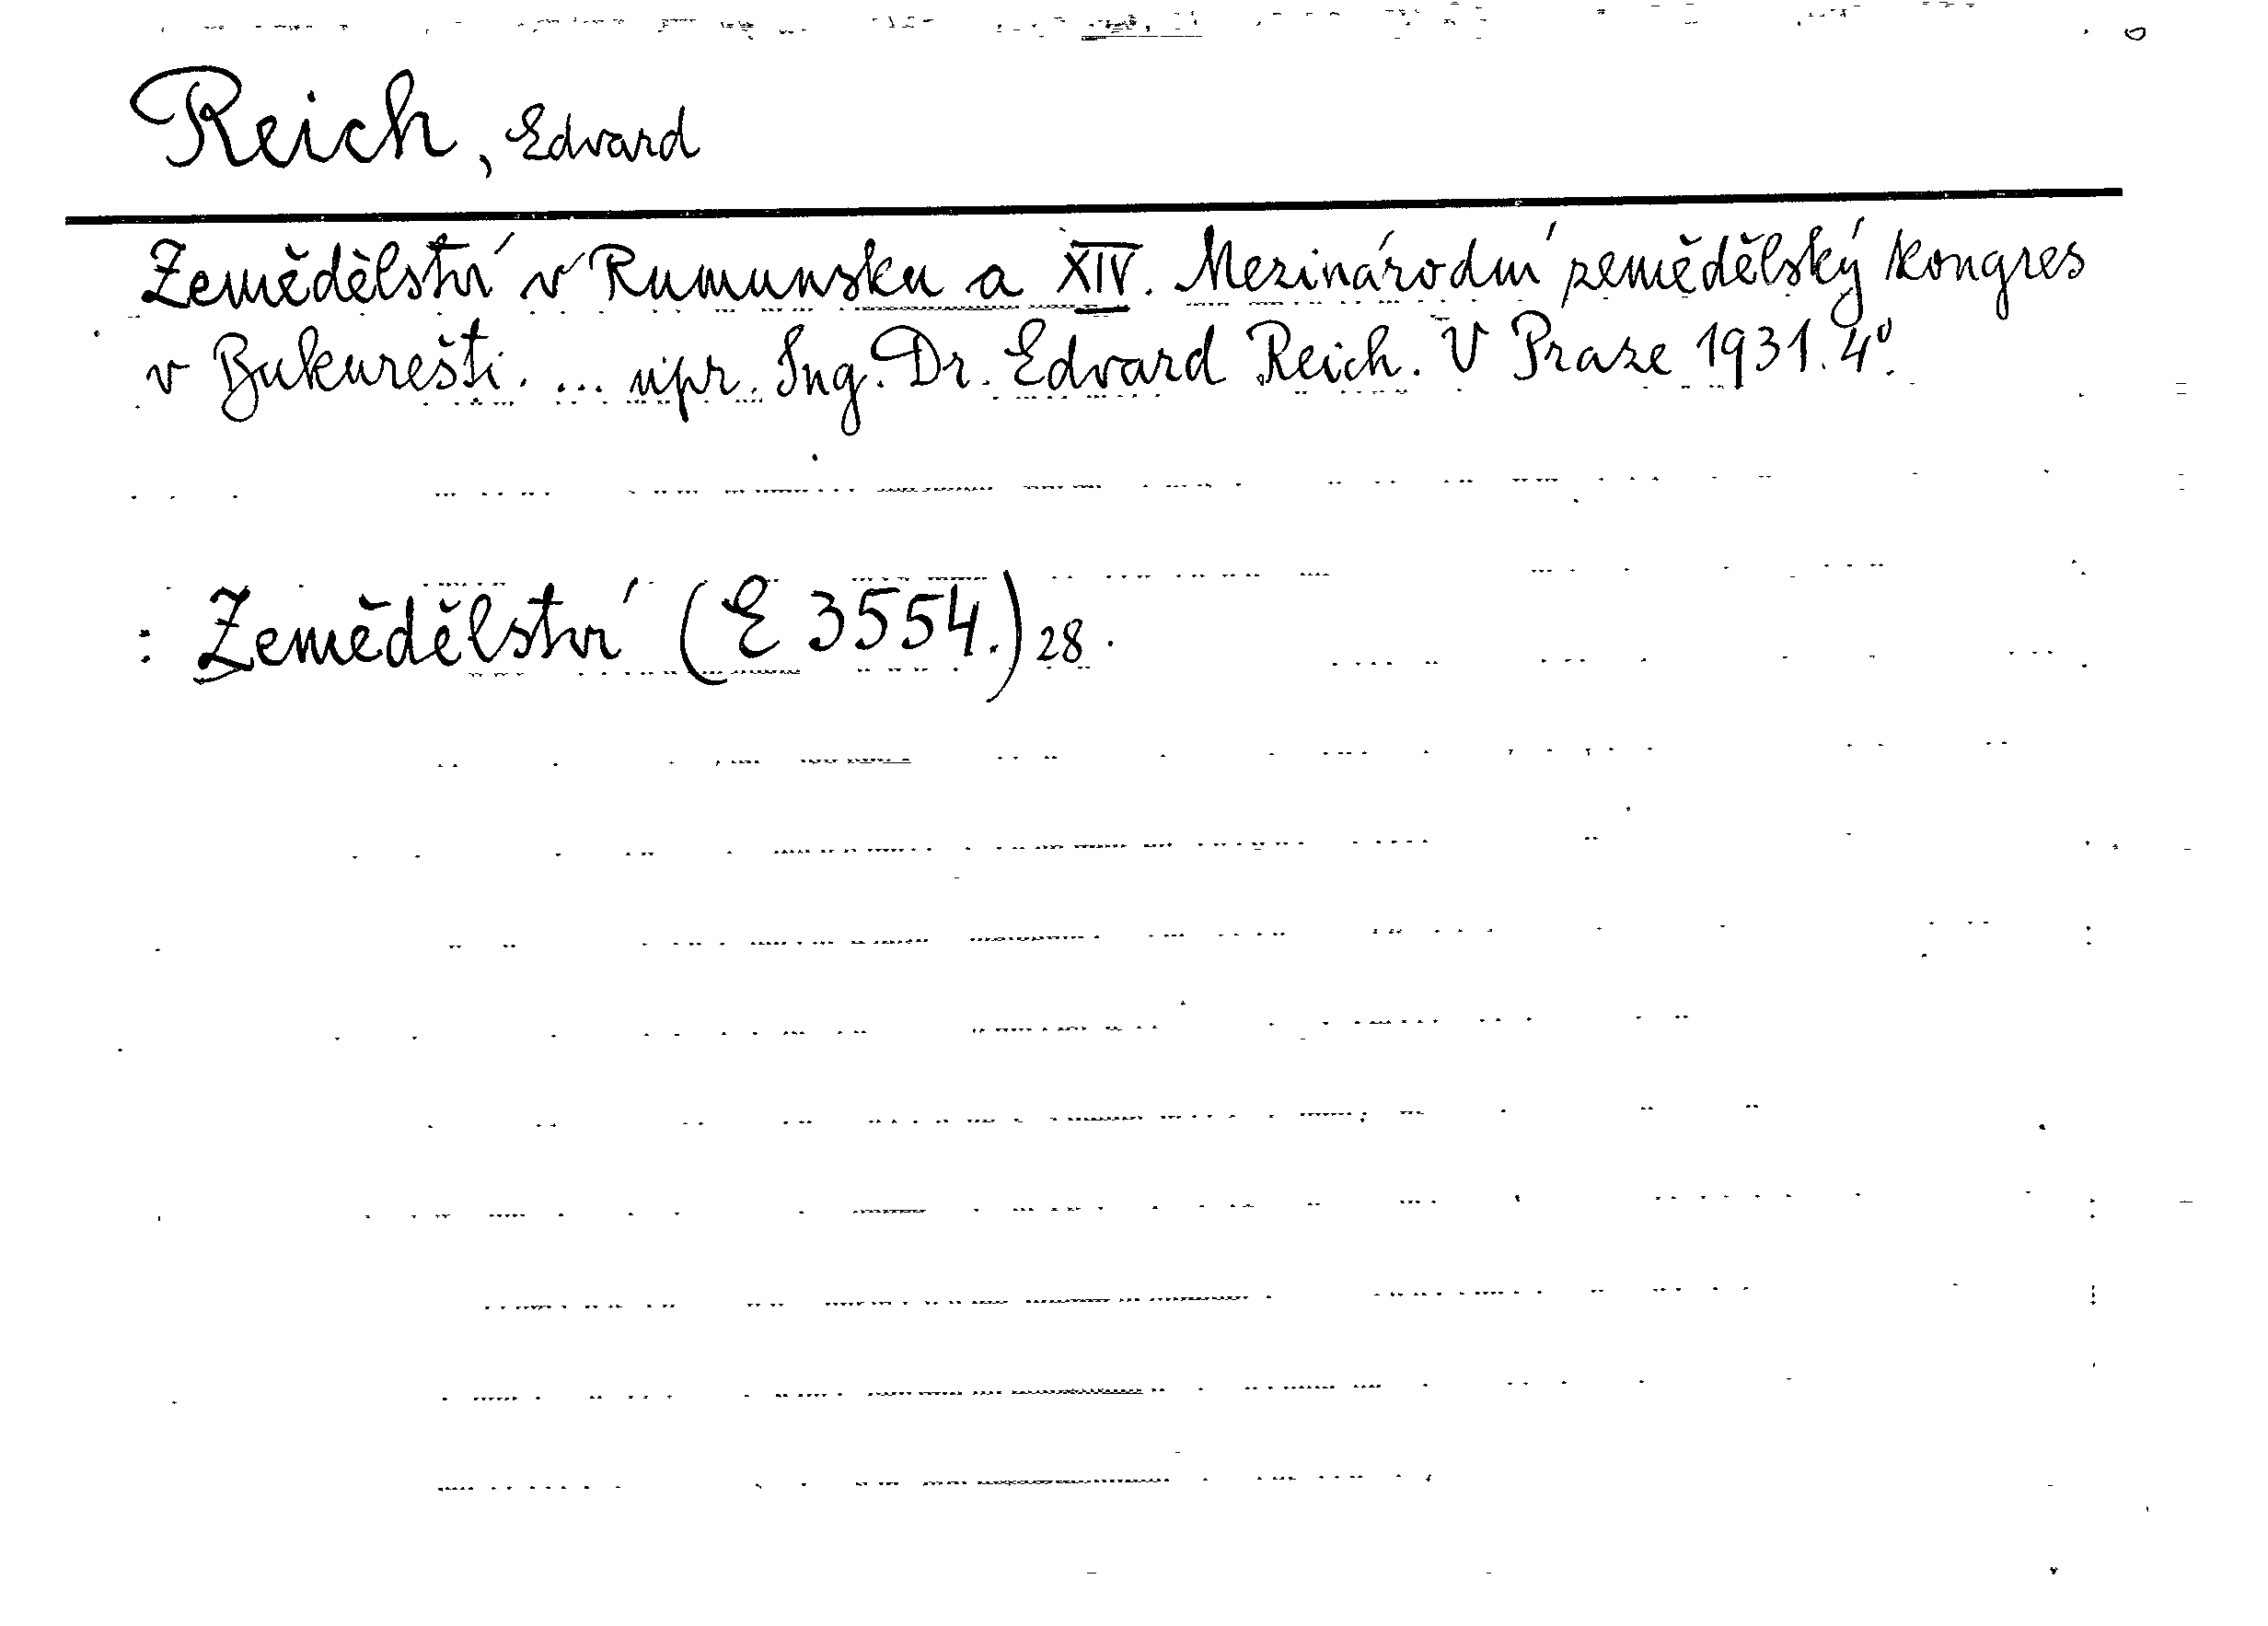 Reich, Edvard
Zemědělství v Rumunsku a XIV. Mezinárodní zemědělský kongres
v Bukurešti. ... upr. Ing. Dr. Edvard Reich. V Praze 1931. 4°.
: Zemědělství (E 3554.) 28.